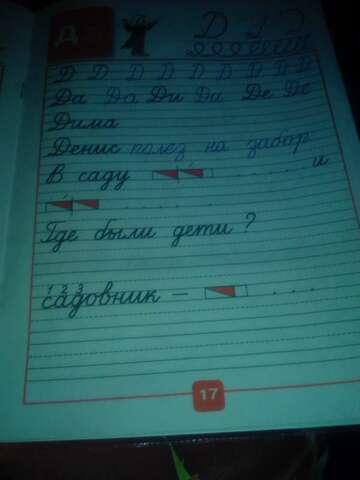 Д
Д Д Д
Д Д Д Д Д Д Д Д
Да Да Ди Ди Де Де
Дима
Денис полез на забор
В саду и
Где были дети ?
1 2 3
садовник –
17